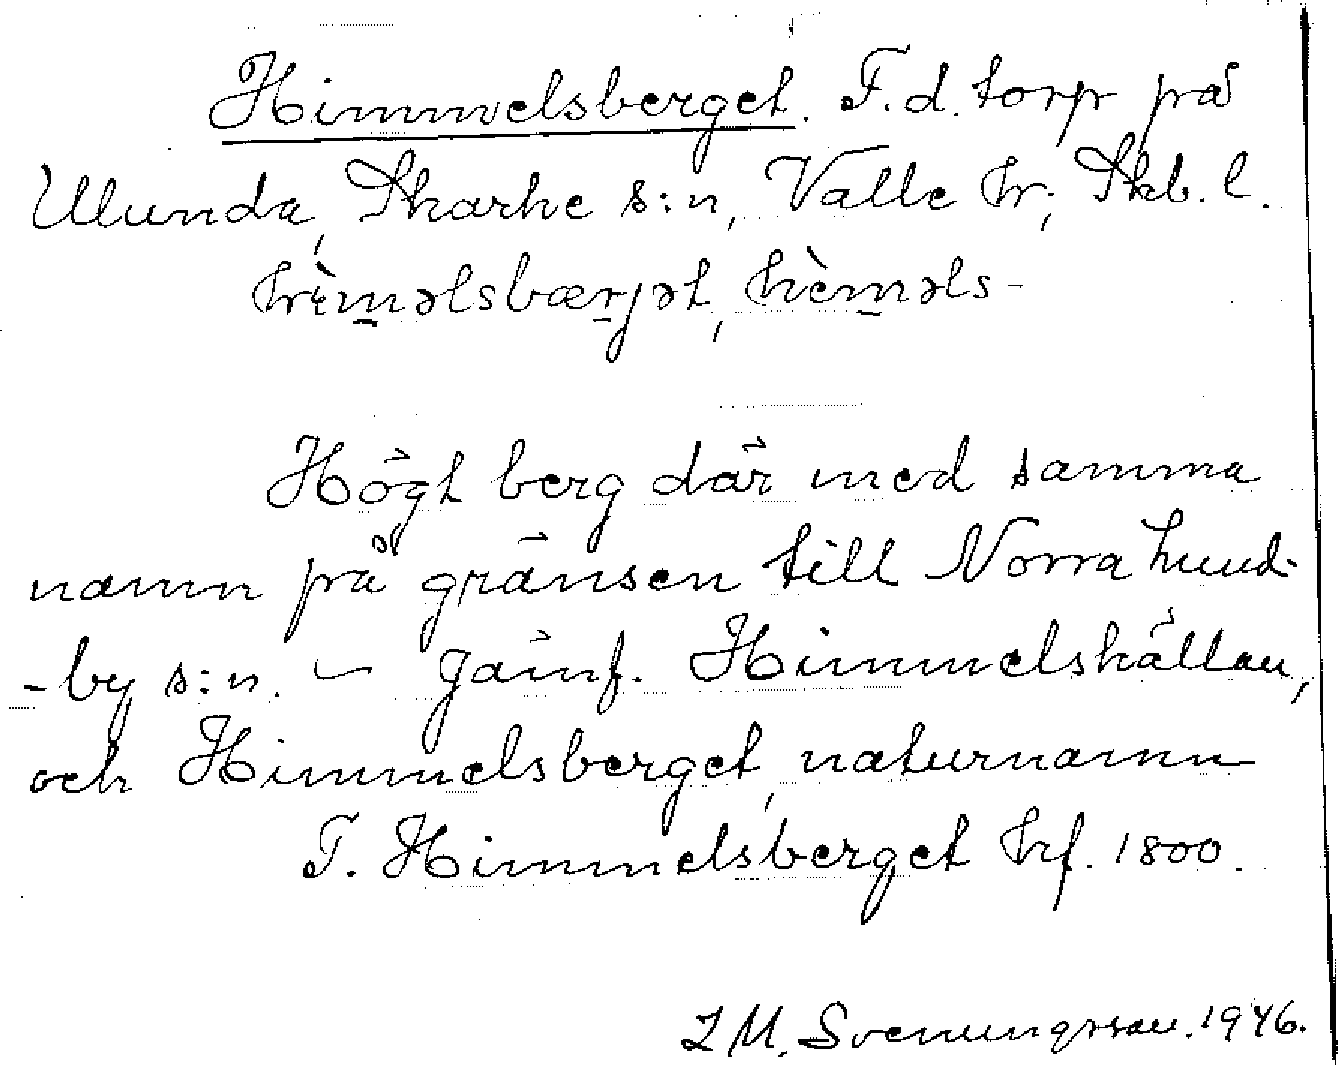 Himmelsberget. F.d. torp på
Ulunda, Skarke s:n, Valle hr, Skb. l.
hìm̲əlsbær̲jət, hèm̲əls-
Högt berg där med samma
namn på gränsen till Norra Lund-
-by s:n. – Jämf. Himmelskällan,
och Himmelsberget, naturnamn
T. Himmelsberget hf. 1800.
I M. Svenungsson. 1946.